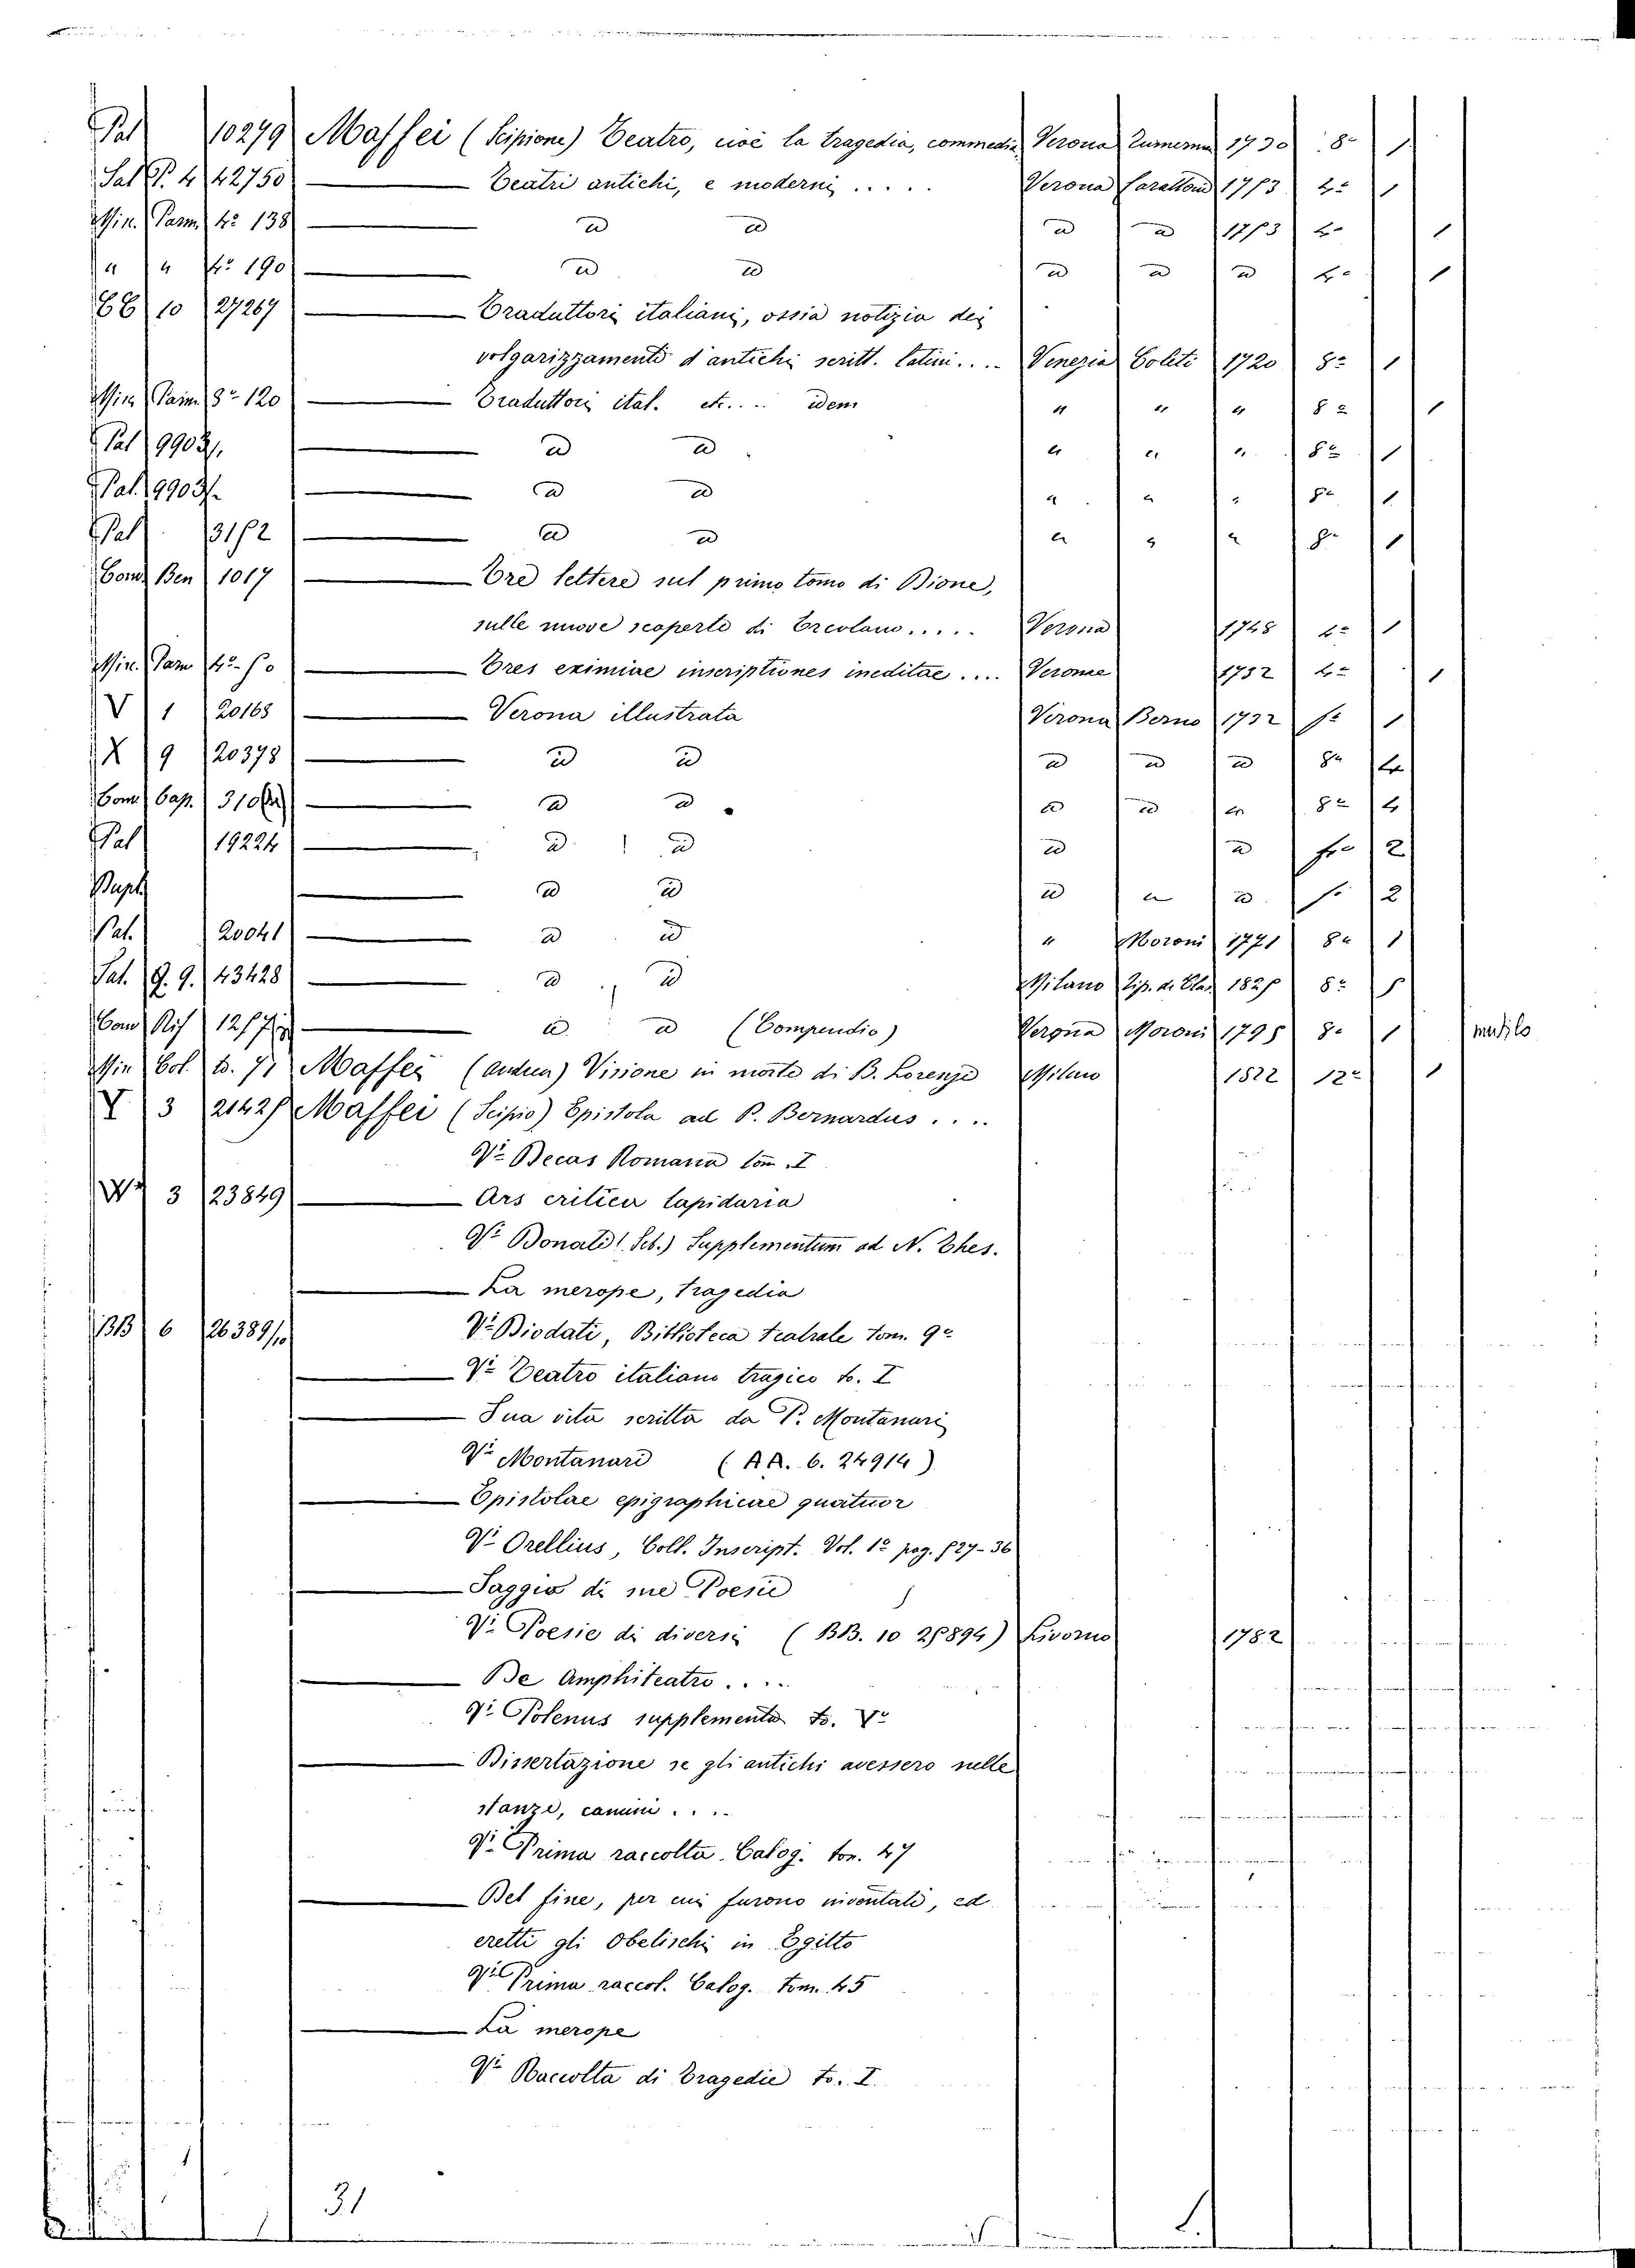 Pal 10279 Maffei (Scipione) Teatro, cioè la tragedia, commedia Verona 1730 8° 1
Sal P. 4 42750 — Teatri antichi, e moderni ..... Verona Carattoni 1753 4° 1
Min. Parm. 4° 138 — id id id id 1753 4° 1
" " 4° 190 — id id id id id 4° 1
EE 10 27267 — Traduttori italiani, ossia notizia dei
volgarizzamenti d'antichi scritt. latini.... Venezia Coleti 1720 8° 1
Min. Parm. 8° 120 — Traduttori ital. etc.... idem " " " 8° 1
Pal 9903/. — id id " " " 8° 1
Pal. 9903/. — id id " " " 8° 1
Pal 3152 — id id " " " 8° 1
Com. Ben 1017 — Tre lettere sul primo tomo di Dione,
sulle nuove scoperte di Ercolano..... Verona 1748 4° 1
Min. Parm 4°. 50 — Tres eximiae inscriptiones ineditae.... Veronae 1732 4° 1
V 1 20168 — Verona illustrata Verona Berno 1732 f° 1
X 9 20378 — id id id id id 8° 4
Com. Cap. 310 — id id id id " 8° 4
Pal 19224 — id id id id f° 2
Dupl — id id id " id f° 2
Pal. 20041 — id id " Moroni 1771 8° 1
Sal. Q. 9. 43428 — id id Milano Tip. de Clas. 1825 8° 5
Com. Rif 125 — id id (Compendio) Verona Moroni 1795 8° 1 mutilo
Min Col. t. 71 Maffei (Andrea) Visione in morte di B. Lorenzi Milano 1822 12° 1
Y 3 21425 Maffei (Scipio) Epistola ad P. Bernardus....
V° Decas Romana tom. I
W 3 23849 — Ars critica lapidaria
V° Donati (Seb.) Supplementum ad N. Thes.
— La merope, tragedia
BB 6 26389/10 V° Diodati, Biblioteca teatrale tom. 9°
— V° Teatro italiano tragico t. I
— Sua vita scritta da P. Montanari
V° Montanari (AA. 6. 24914)
— Epistolae epigraphicae quatuor
V° Orellius, Coll. Inscript. Vol. 1° pag. 527-36
— Saggio di sue Poesie
V° Poesie di diversi (BB. 10 25894) Livorno 1782
— De Amphiteatro....
V° Polenus supplementa t. V°
— Dissertazione se gli antichi avessero nelle
stanze, camini....
V° Prima raccolta Calog. tom. 47
— Del fine, per cui furono inventati, ed
eretti gli Obelischi in Egitto
V° Prima raccol. Calog. tom. 45
— La merope
V° Raccolta di Tragedie t. I.
31